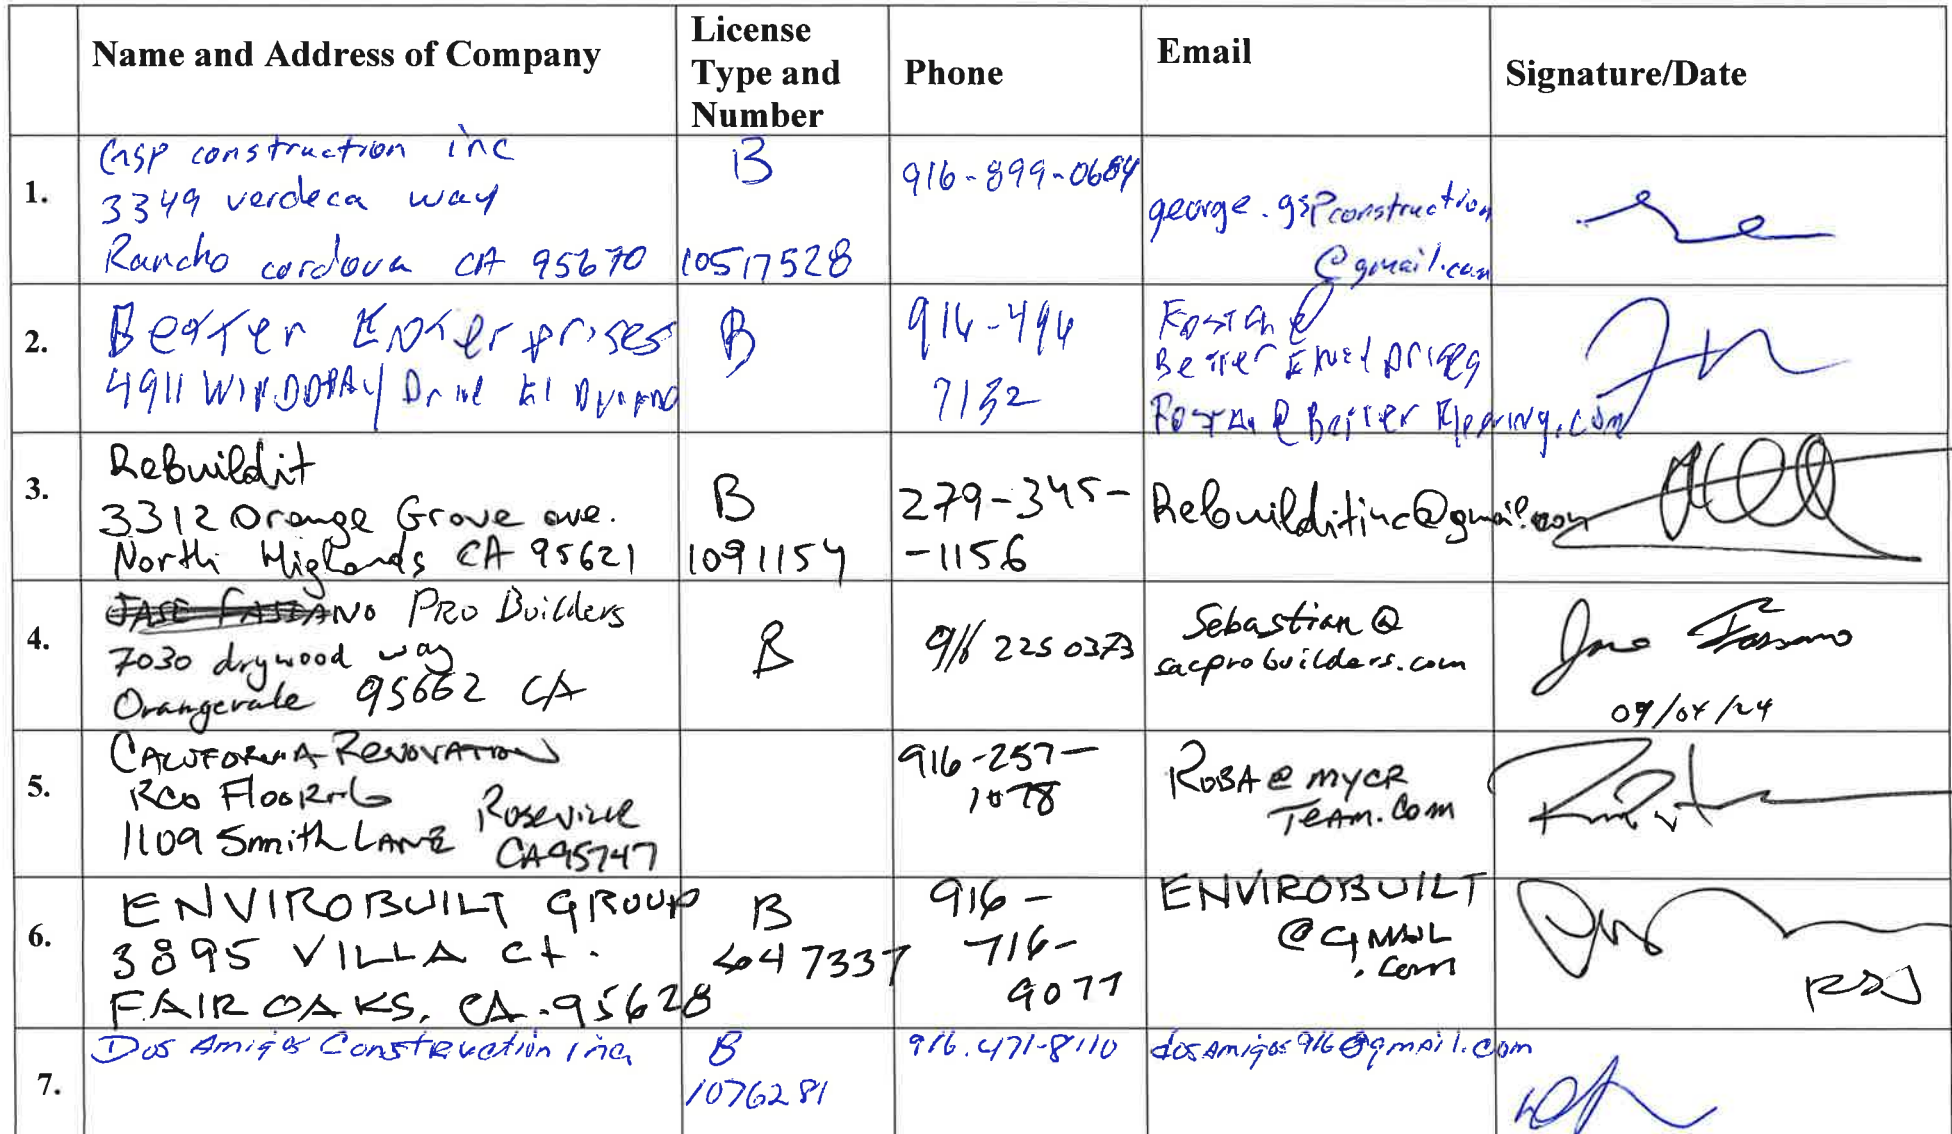 Name and Address of Company
License Type and Number
Phone
Email
Signature/Date
1.
GSP construction inc
3349 verdeca way
Rancho cordova CA 95670
B
10517528
916-899-0684
george.gspconstruction
@gmail.com
2.
Better Enterprises
4911
Drive El
B
916-496
7132
@
Better
3.
Rebuildit
3312 Orange Grove ave.
North Higlands CA 95621
B
1091154
279-345-
-1156
Rebuilditinc@gmail.com
4.
JASE FASSANO PRO Builders
7030 drywood way
Orangevale 95662 CA
B
916 225 0373
Sebastian@
sacprobuilders.com
Jase Fassano
09/04/24
5.
CALIFORNIA RENOVATION
RCO FlooRING
1109 Smith LANE Roseville
CA 95747
916-257-
1078
ROBA@MYCR
TEAM.COM
6.
ENVIROBUILT GROUP
3895 VILLA Ct.
FAIR OAKS, CA. 95628
B
7337
916-
716-
9077
ENVIROBUILT
@GMAIL
.com
7.
Dos Amigos Construction inc
B
1076281
916.471-8110
dosamigos916@gmail.com